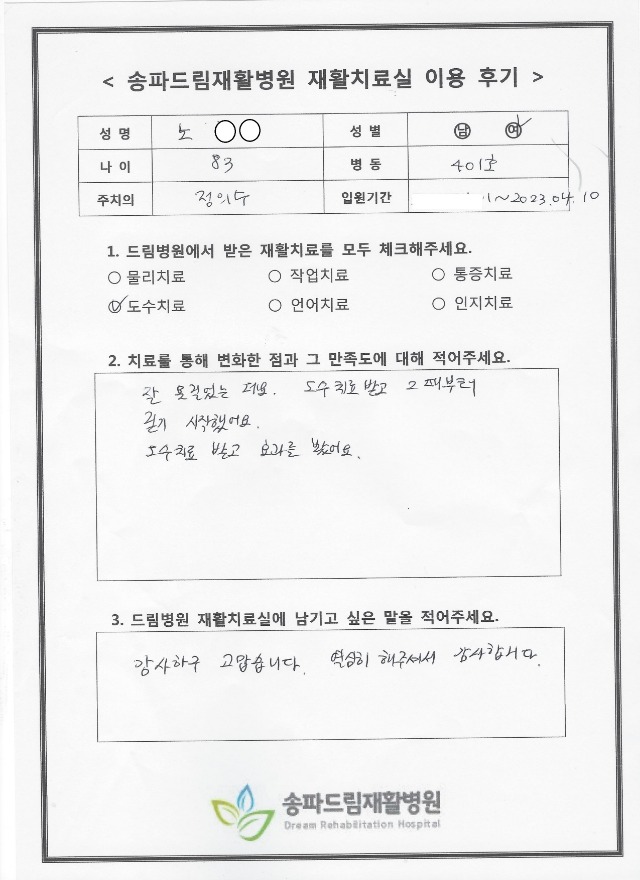 < 송파드림재활병원 재활치료실 이용 후기 >
성 명 노 ○○ 성 별 남 여
나 이 83 병 동 401호
주치의 정의수 입원기간 ~2023.04.10
1. 드림병원에서 받은 재활치료를 모두 체크해주세요.
○ 물리치료 ○ 작업치료 ○ 통증치료
○ 도수치료 ○ 언어치료 ○ 인지치료
2. 치료를 통해 변화한 점과 그 만족도에 대해 적어주세요.
잘 못걸었는데요. 도수치료 받고 그때부터
걷기 시작했어요.
도수치료 받고 효과를 봤어요.
3. 드림병원 재활치료실에 남기고 싶은 말을 적어주세요.
감사하구 고맙습니다. 열심히 해주셔서 감사합니다.
송파드림재활병원
Dream Rehabilitation Hospital